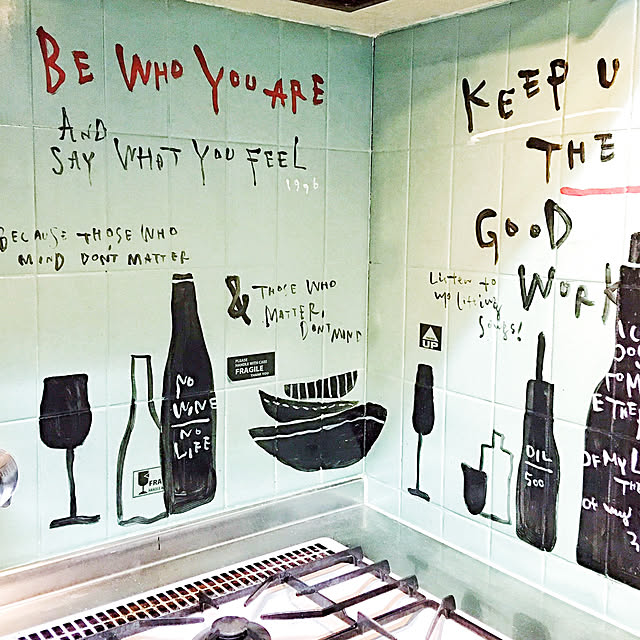 BE WHO YOU ARE
AND
SAY WHAT YOU FEEL
1996
BECAUSE THOSE WHO
MIND DON'T MATTER
& THOSE WHO
MATTER,
DONT MIND
PLEASE
HANDLE WITH CARE
FRAGILE
THANK YOU
NO
WINE
NO
LIFE
FRA
KEEP U
THE
GOOD
WORK
Listen to
uplifting
songs!
UP
OIL
500
OF MY